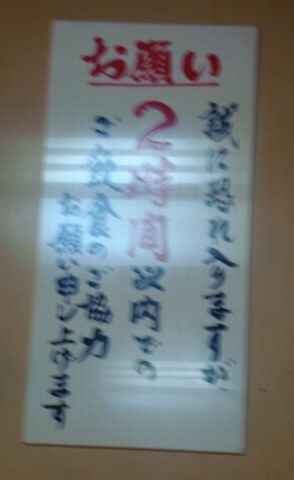 お願い
誠に恐れ入りますが、
2時間以内での
ご飲食のご協力
お願い申し上げます